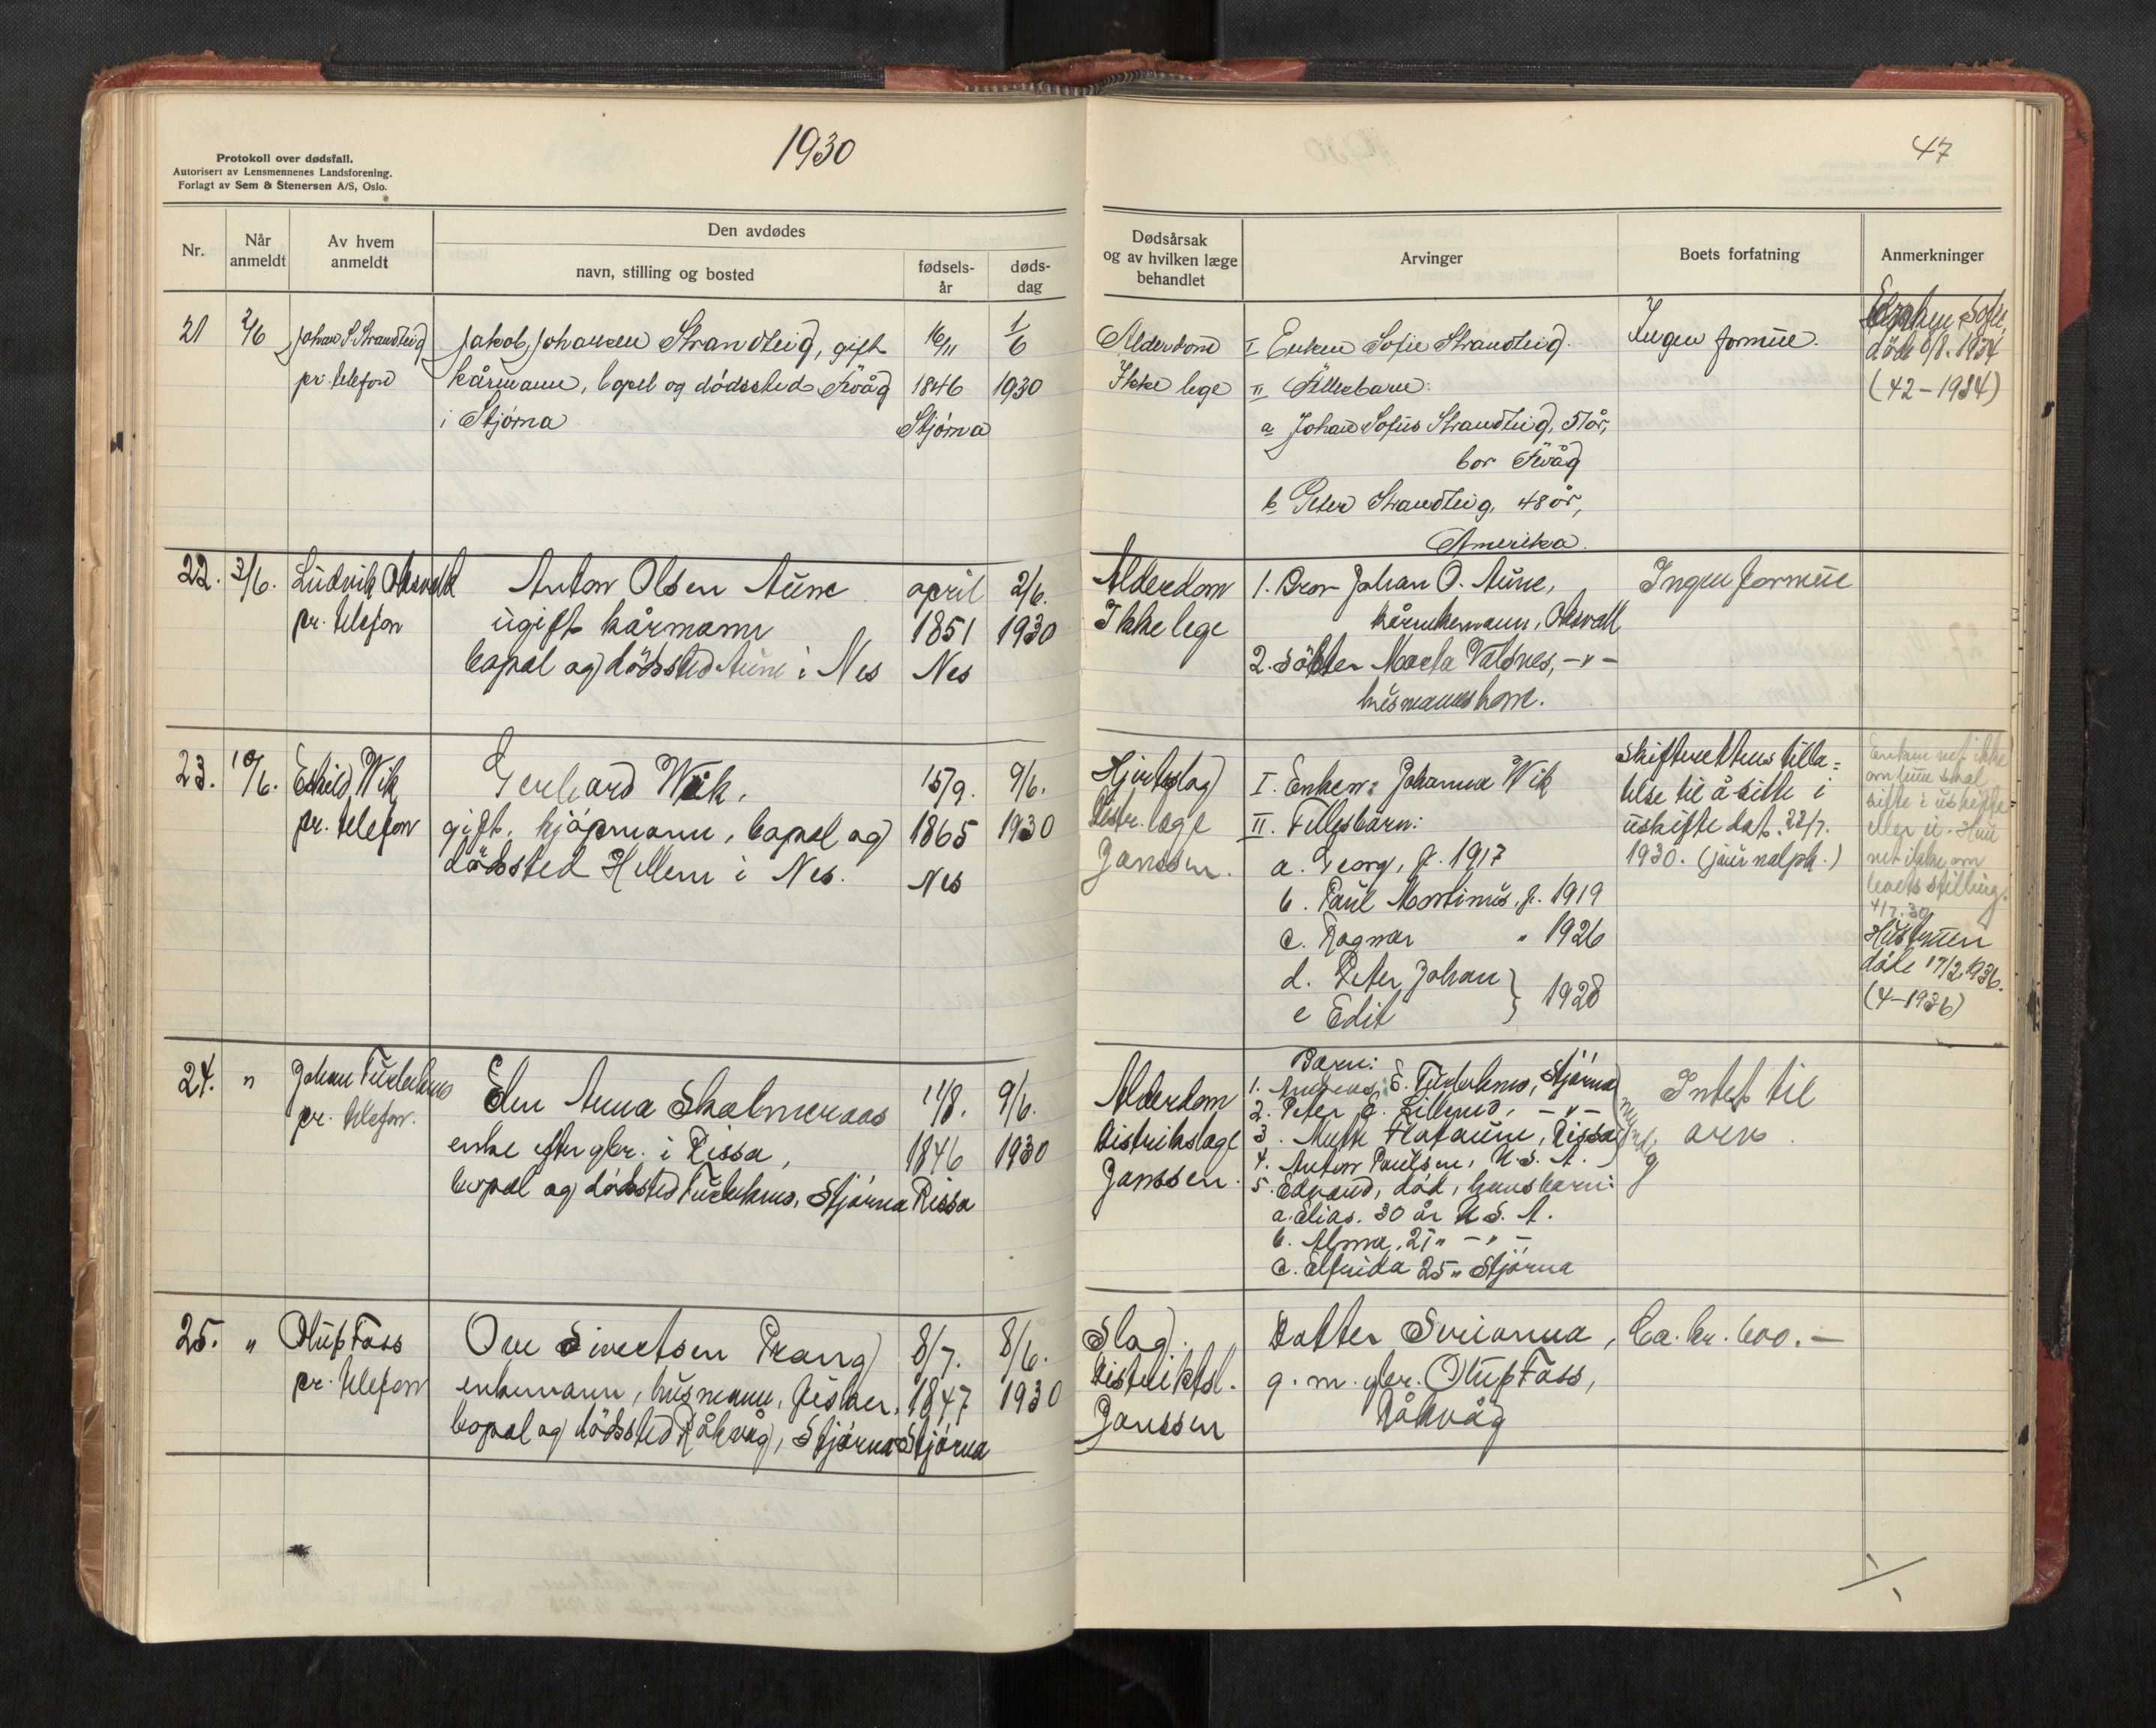 1930
47
Protokoll over dødsfall.
Autorisert av Lensmennenes Landsforening.
Forlagt av Sem & Stenersen A/S, Oslo.
Nr.
Når
anmeldt
Av hvem
anmeldt
Den avdødes
navn, stilling og bosted
fødsels-
år
døds-
dag
Dødsårsak
og av hvilken læge
behandlet
Arvinger
Boets forfatning
Anmerkninger
21
2/6
Johan S. Strandteig
pr. telefon
Jakob Johansen Strandteig, gift
kårmann, bopel og dødssted Fevåg
i Stjørna
16/11
1846
Stjørna
1/6
1930
Alderdom
Ikke lege
I Enken Sofie Strandteig.
II Fellesbarn:
a Johan Sofus Strandteig, 51 år,
bor Fevåg
b Peter Strandteig, 48 år,
Amerika.
Ingen formue.
Sofie,
døde 6/8. 1934
(42-1934)
22.
3/6.
Ludvik Oksvold
pr. telefon
Anton Olsen Aune
ugift kårmann
bopæl og dødssted Aune i Nes
april
1851
Nes
2/6.
1930
Alderdom
Ikke lege
1. Bror Johan O. Aune,
Oksvoll
2. Søster Marta Valsnes, -"-
husmannskone.
Ingen formue
23.
10/6.
Eskild Wik
pr. telefon
Gerhard Wik.
gift, kjøpmann, bopæl og
dødssted Hellem i Nes.
15/9.
1865
Nes
9/6.
1930
Hjerteslag
Distr. læge
Janssen.
I. Enken: Johanna Wik
II. Fellesbarn:
a. Georg, f. 1917
b. Paul Martinus, f. 1919
c. Ragnar " 1926
d. Peter Johan
e Edit } 1928
Skifterettens tilla=
telse til å sitte i
uskifte dat. 22/7.
1930. (journalpk.)
Enken vet ikke
om hun skal
sitte i uskifte
eller ei. Hun
vet ikke om
boets stilling.
4/7.30
Hustruen
døde 17/2 1936.
(4-1936)
24.
"
Johan
pr. telefon.
Elen Anna Skalmeraas
enke efter gbr. i Rissa,
bopæl og dødssted Stjørna
11/8.
1846
Rissa
9/6.
1930
Alderdom
Distriktslæge
Janssen.
Barn:
1. Andreas E. Stjørna
2. Peter -"-
3. Rissa
4. Anton Paulsen, U. S. A.
5. Edvard, død, hans barn:
a. Elias. 30 år U. S. A.
b. Alma, 27 " - " -
c. Elfrida 25 " Stjørna
myndig
Intet til
arv.
25.
"
Oluf Foss
pr. telefon
Ole Sivertsen Prang
enkemann, husmann, fisker,
bopæl og dødssted Råkvåg, Stjørna
8/7.
1847
Stjørna
8/6.
1930
Slag.
Distriktsl.
Janssen
Datter Serianna,
g. m. gbr. Oluf Foss,
Råkvåg
Ca. kr. 600.-